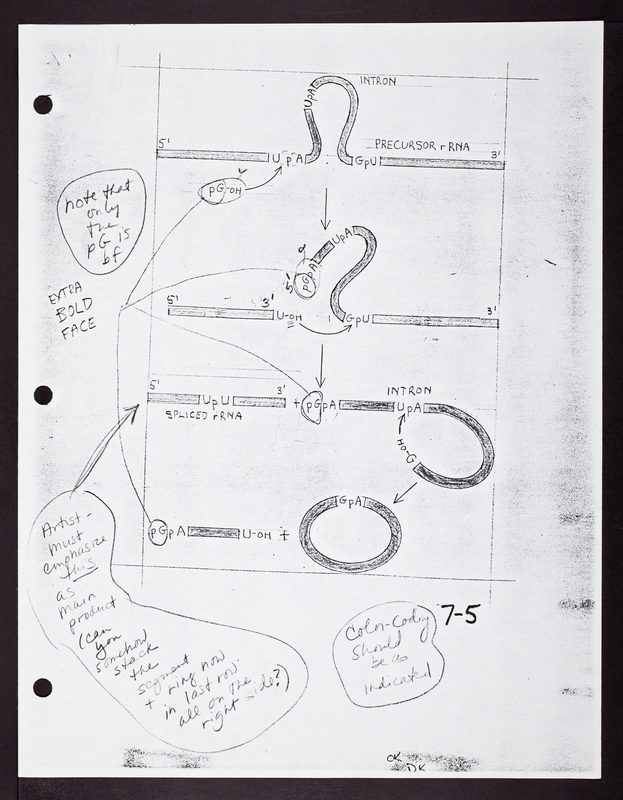 INTRON
UpA
5'
PRECURSOR rRNA
3'
UpA
GpU
pG-OH
note that
only
the
pG is
bf
EXTRA
BOLD
FACE
UpA
pGpA
5'
5'
3'
U-OH
GpU
3'
5'
UpU
3'
SPLICED rRNA
+
pGpA
INTRON
UpA
HO-G
pGpA
U-OH
+
GpA
Artist-
must
emphasize
this
as
main
product
(can
you
somehow
stack
the
segment
+ ring now
in last row
all on the
right side?)
7-5
Color-coding
should
be as
indicated
OK
DK